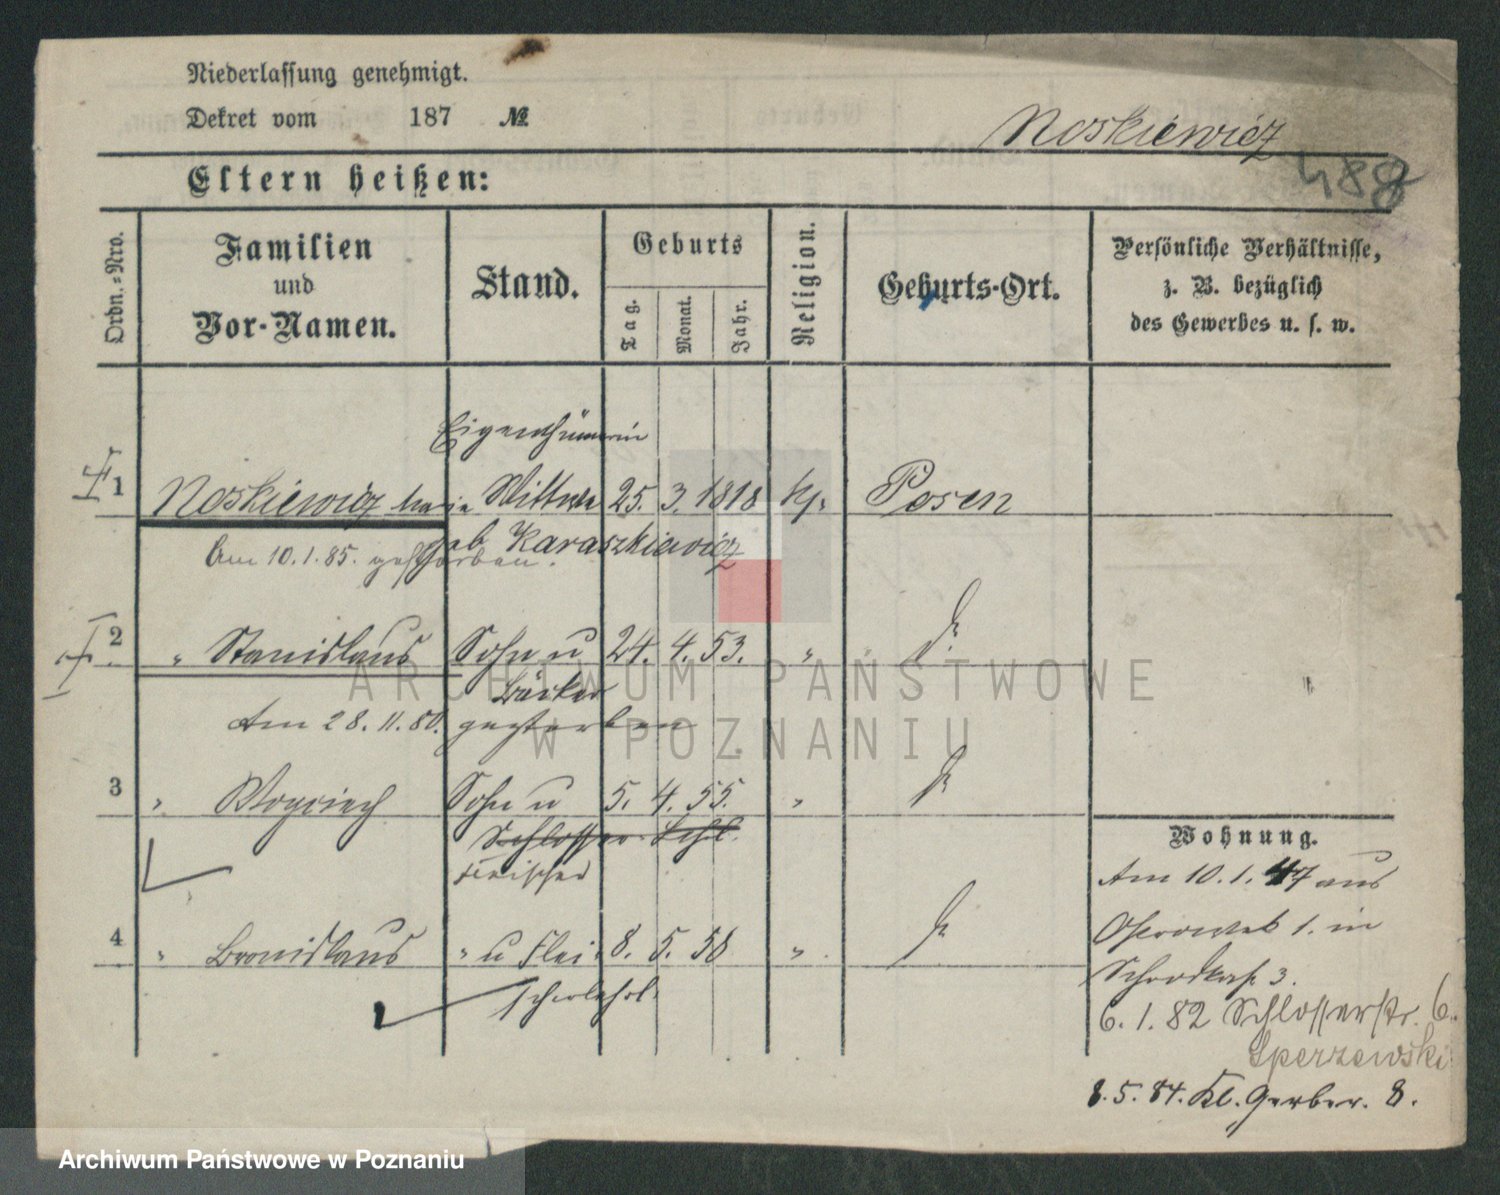 Niederlassung genehmigt.
Dekret vom 187 №
Noskiewicz
488
Eltern heißen:
Ordn.-Nro.
Familien
und
Vor-Namen.
Stand.
Geburts
Tag.
Monat.
Jahr.
Religion.
Geburts-Ort.
Persönliche Verhältnisse,
z. B. bezüglich
des Gewerbes u. s. w.
Eigenthümerin
1 Noskiewicz Wittwe 25. 3. 1818 Posen
geb Karaszkiewicz
Am 10.1.85. gestorben.
2 " Stanislaus Sohn u 24. 4. 53. "
Bäcker
Am 28.11.80. gestorben
3 " Woyciech Sohn u 5. 4. 55. "
Schlosser Lehrl.
Fleischer
4 " Bronislaus " u Flei- 8. 5. 58 "
scherlehrl.
Wohnung.
Am 10.1. 77 aus
Ostrowek 1. in
3.
6.1.82 Schlosserstr. 6.
8.5.84. Kl. Gerber. 8.
ARCHIWUM PAŃSTWOWE
W POZNANIU
Archiwum Państwowe w Poznaniu